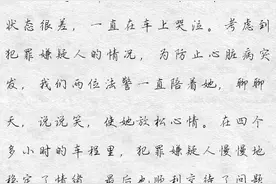 状态很差，一直在车上哭泣。考虑到
犯罪嫌疑人的情况，为防止心脏病突
发，我们两位法警一直陪着她，聊聊
天，说说笑，使她放松心情。在四个
多小时的车程里，犯罪嫌疑人慢慢地
稳定了情绪，最后也顺利交待了问题